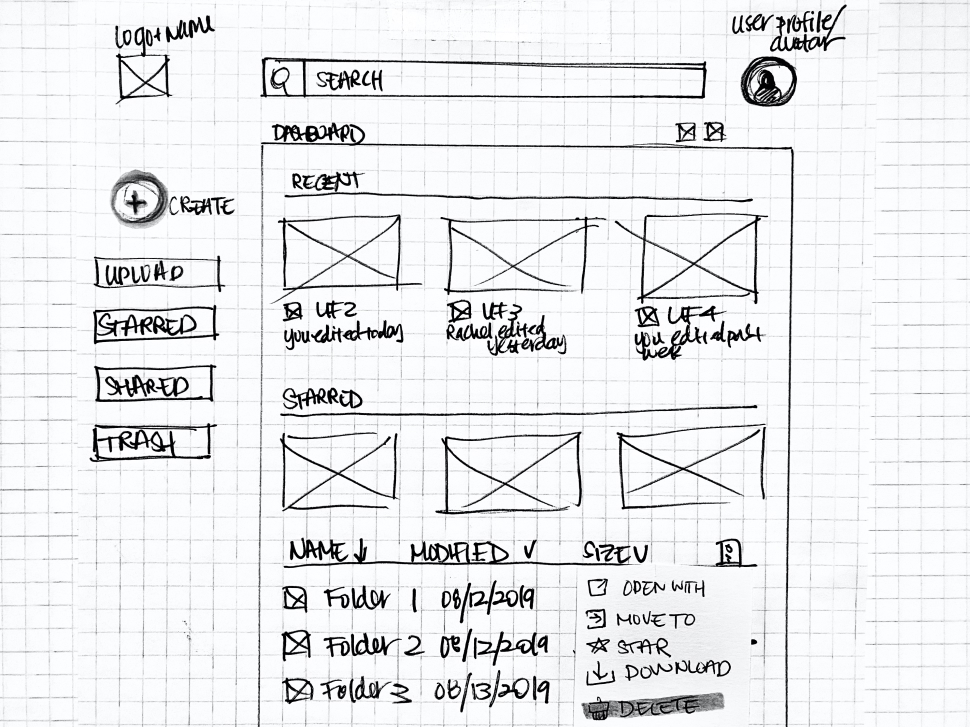 logo + NAME
user profile/
avatar
SEARCH
DASHBOARD
CREATE
UPLOAD
STARRED
SHARED
TRASH
RECENT
UF2
you edited today
UF3
Rachel edited
yesterday
UF4
you edited past
week
STARRED
NAME MODIFIED SIZE
Folder 1 08/12/2019
Folder 2 08/12/2019
Folder 3 08/13/2019
OPEN WITH
MOVE TO
STAR
DOWNLOAD
DELETE